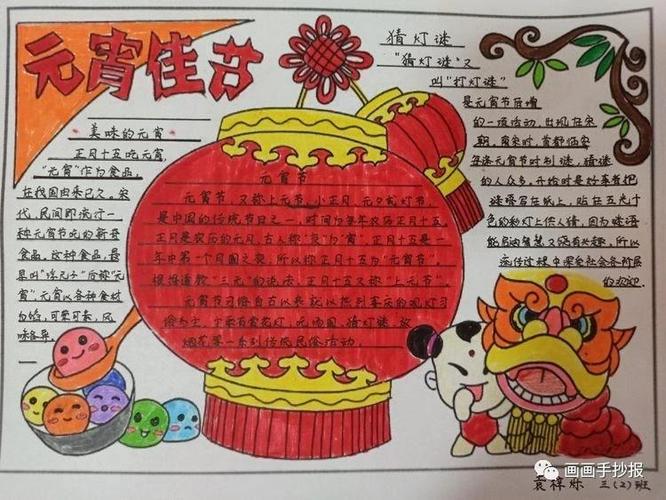 元宵佳节
美味的元宵
正月十五吃元宵,
"元宵"作为食品,
在我国由来已久。宋
代,民间即流行一
种元宵节吃的新奇
食品。这种食品,最
早叫"浮元子"后称"元
宵"。元宵以各种食材
为馅,可荤可素,风
味各异。
元宵节
元宵节,又称上元节、小正月、元夕或灯节,
是中国的传统节日之一,时间为每年农历正月十五。
正月是农历的元月,古人称"夜"为"宵",正月十五是一
年中第一个月圆之夜,所以称正月十五为"元宵节"。
根据道教"三元"的说法,正月十五又称"上元节"。
元宵节习俗自古以来就以热烈喜庆的观灯习
俗为主,
烟花是一系列传统民俗活动。
猜灯谜
"猜灯谜"又
叫"打灯谜"
是元宵节后增
的一项活动,出现在宋
朝。南宋时,首都临安
每逢元宵节时制谜,猜谜
的人众多。开始时是好事者把
谜语写在纸上,贴在五光十
色的彩灯上供人猜。因为谜语
能启迪智慧又饶有兴趣,所以
流传过程中深受社会各阶层
的欢迎。
三(2)班
画画手抄报